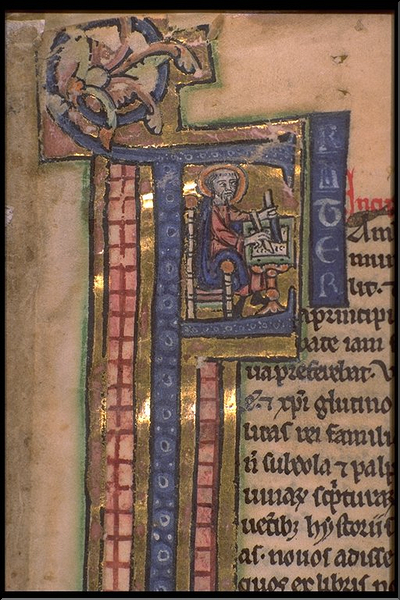 F
RATER
Inci
Am
mun
lit
aprincipi
bate iam
ua preferebat. V
ē ⁊ xp̄i glutino
litas rei famili
n̄ subdola ⁊ palp
uinaꝝ sc̄pturaꝝ
uet̄ib; hystorii
as. nouos adisse
quos ex libris n